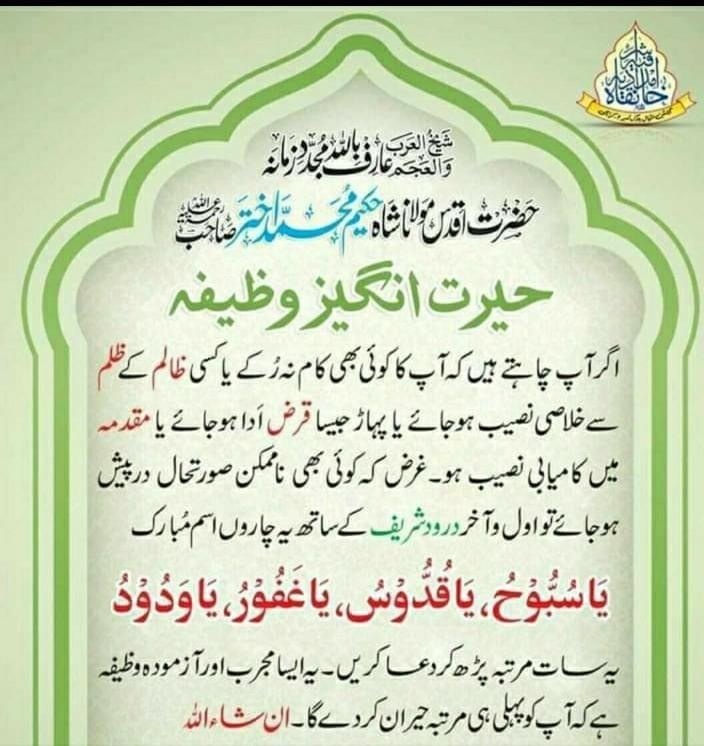 خانقاہ امدادیہ اشرفیہ
شیخ العرب والعجم عارف باللہ مجدد زمانہ
حضرت اقدس مولانا شاہ حکیم محمد اختر صاحب رحمۃ اللہ علیہ
حیرت انگیز وظیفہ
اگر آپ چاہتے ہیں کہ آپ کا کوئی بھی کام نہ رُکے یا کسی ظالم کے ظلم
سے خلاصی نصیب ہو جائے یا پہاڑ جیسا قرض اَدا ہو جائے یا مقدمہ
میں کامیابی نصیب ہو۔ غرض کہ کوئی بھی ناممکن صورتحال درپیش
ہو جائے تو اول و آخر درود شریف کے ساتھ یہ چاروں اسم مُبارک
یَا سُبُّوْحُ، یَا قُدُّوْسُ، یَا غَفُوْرُ، یَا وَدُوْدُ
یہ سات مرتبہ پڑھ کر دعا کریں۔ یہ ایسا مجرب اور آزمودہ وظیفہ
ہے کہ آپ کو پہلی ہی مرتبہ حیران کر دے گا۔ ان شاء اللہ